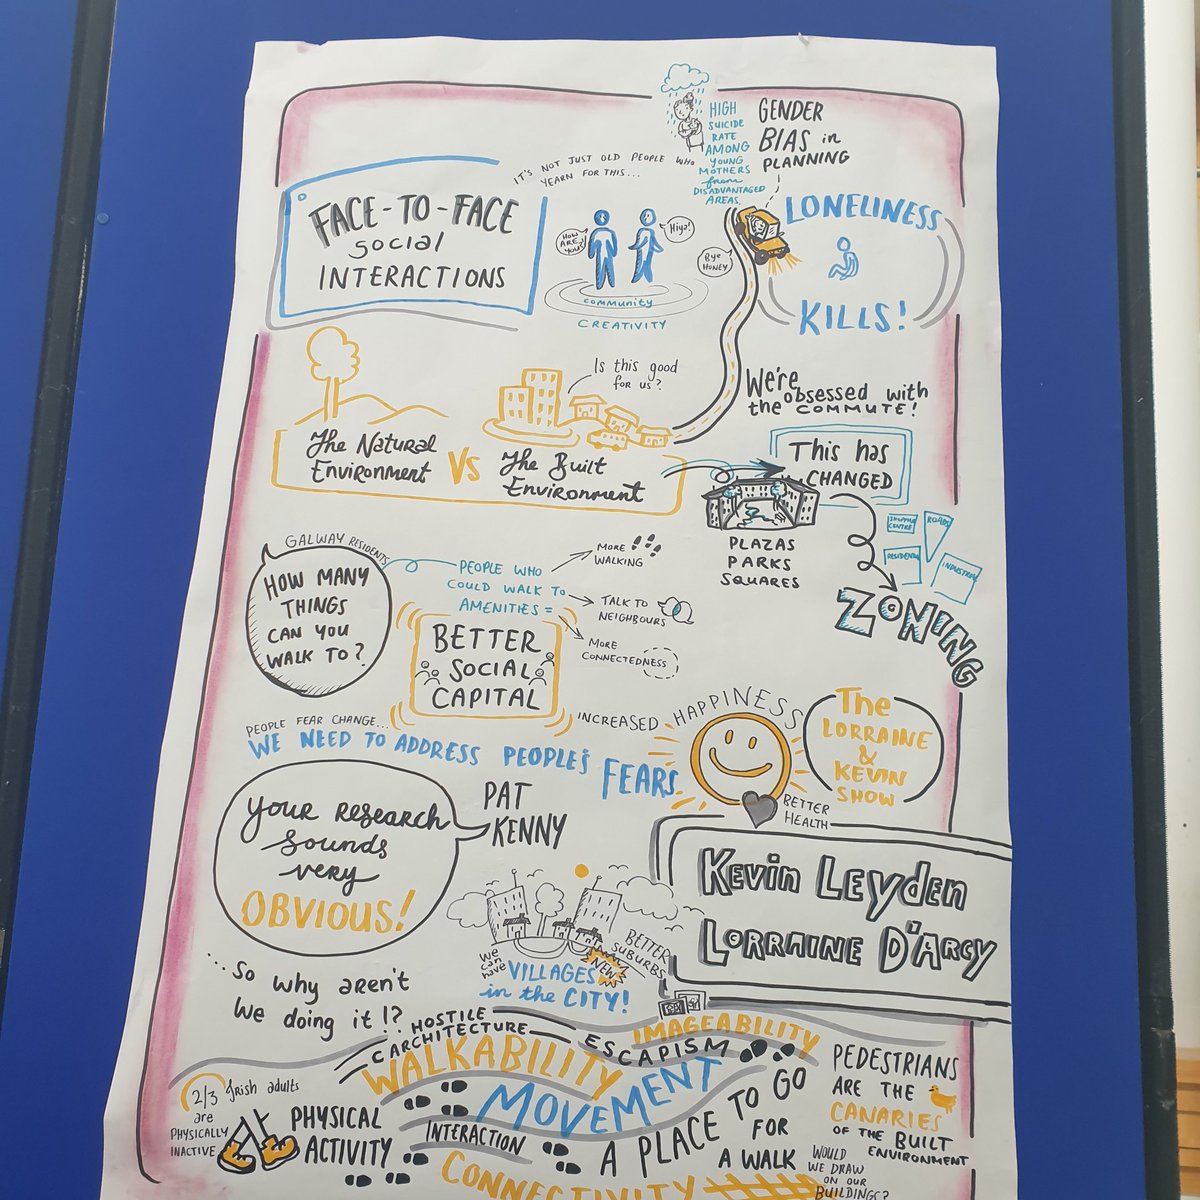 HIGH
SUICIDE
RATE
AMONG
YOUNG
MOTHERS
from
DISADVANTAGED
AREAS.
GENDER
BIAS in
PLANNING
FACE-TO-FACE
SOCIAL
INTERACTIONS
IT'S NOT JUST OLD PEOPLE WHO
YEARN FOR THIS...
HOW
ARE
YOU?
Hiya!
COMMUNITY
CREATIVITY
Bye
HUNEY
LONELINESS
KILLS!
Is this good
for us?
We're
obsessed with
the COMMUTE!
The Natural
Environment
VS
The Built
Environment
This has
CHANGED
PLAZAS
PARKS
SQUARES
SHOPPING
CENTRE
ROADS
RESIDENTIAL
INDUSTRIAL
ZONING
GALWAY RESIDENTS
HOW MANY
THINGS
CAN YOU
WALK TO?
PEOPLE WHO
COULD WALK TO
AMENITIES =
MORE
WALKING
TALK TO
NEIGHBOURS
MORE
CONNECTEDNESS
BETTER
SOCIAL
CAPITAL
INCREASED HAPPINESS
BETTER
HEALTH
The
LORRAINE
&
KEVIN
SHOW
PEOPLE FEAR CHANGE...
WE NEED TO ADDRESS PEOPLE'S FEARS
Your research
sounds
very
OBVIOUS!
PAT
KENNY
Kevin Leyden
Lorraine D'Arcy
...So why aren't
we doing it!?
We
can
have
VILLAGES
in the CITY!
NEW
BETTER
SUBURBS
HOSTILE
ARCHITECTURE
ESCAPISM
IMAGEABILITY
WALKABILITY
MOVEMENT
INTERACTION
A PLACE TO GO
FOR
A WALK
CONNECTIVITY
2/3 Irish adults
are
PHYSICALLY
INACTIVE
PHYSICAL
ACTIVITY
PEDESTRIANS
ARE THE
CANARIES
OF THE BUILT
ENVIRONMENT
WOULD
WE DRAW
ON OUR
BUILDINGS?